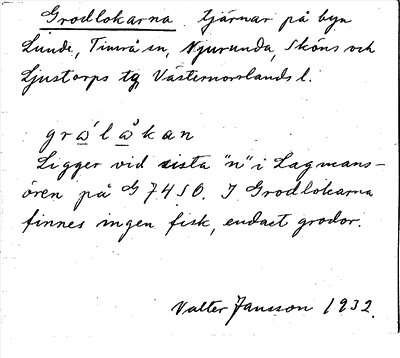 Grodlokarna tjärnar på byn
Lunde, Timrå sn, Njurunda, Sköns och
Ljustorps tg Västernorrlands l.
grὼ´låkan
Ligger vid sista "n" i Lagmans-
ören på G 7450. I Grodlokarna
finnes ingen fisk, endast grodor.
Valter Jansson 1932.